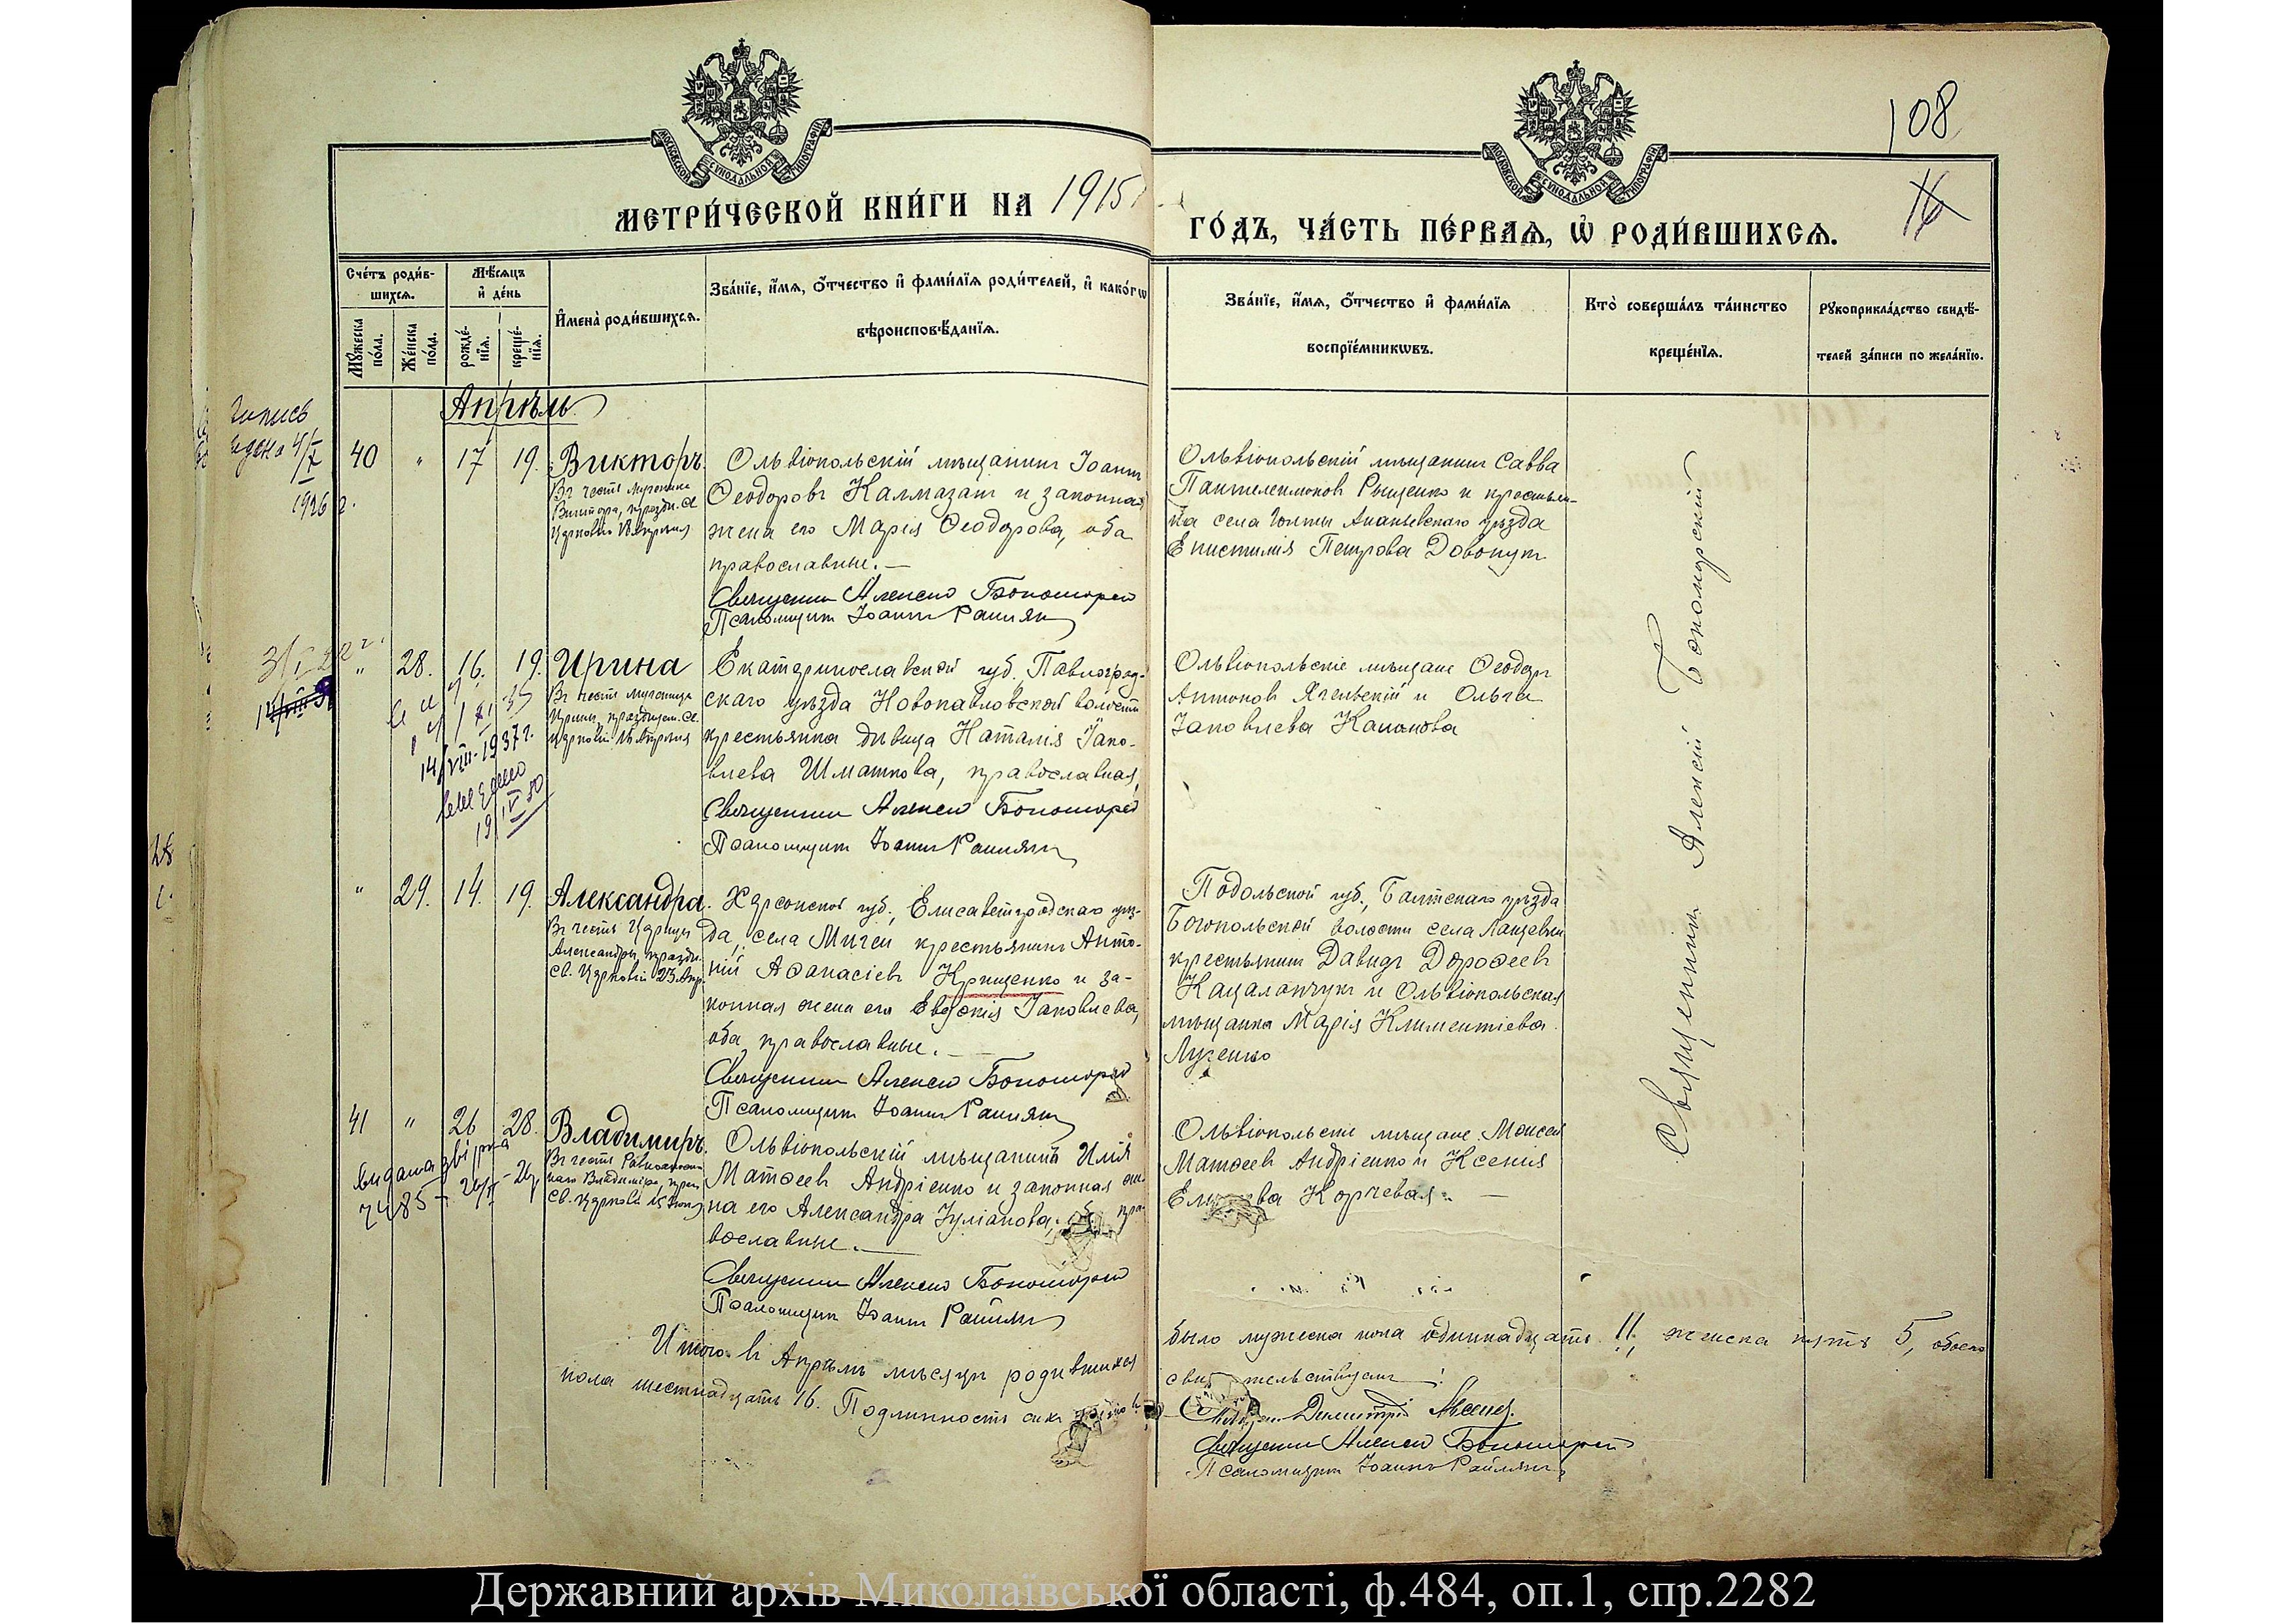 108
16
МОСКОВСКОЙ СѴНОДАЛЬНОЙ ТИПОГРАФІИ
МОСКОВСКОЙ СѴНОДАЛЬНОЙ ТИПОГРАФІИ
МЕТРИ́ЧЕСКОЙ КНИ́ГИ НА 1915
ГО́ДЪ, ЧА́СТЬ ПЕ́РВАѦ, Ѡ҆ РОДИ́ВШИХСѦ.
Сче́тъ роди́в-
шихсѧ.
Мꙋ́жеска по́ла.
Же́нска по́ла.
Мѣ́сѧцъ
и҆ де́нь
рожде́-
нїѧ.
креще́-
нїѧ.
И҆мена̀ роди́вшихсѧ.
Зва́нїе, и҆́мѧ, ѻ҆́тчество и҆ фами́лїѧ роди́телей, и҆ како́гѡ
вѣроисповѣ́данїѧ.
Зва́нїе, и҆́мѧ, ѻ҆́тчество и҆ фами́лїѧ
воспрїе́мникѡвъ.
Кто̀ соверша́лъ та́инство
креще́нїѧ.
Рꙋкоприкла́дство свидѣ́-
телей за́писи по жела́нїю.
Апрѣль
40 " 17 19. Викторъ.
Въ честь мученика
Виктора, праздн. св.
Церковію 18 Апрѣля
Ольвіопольскій мѣщанинъ Іоаннъ
Ѳеодоровъ Калмазанъ и законная
жена его Марія Ѳеодорова, оба
православные. —
Священникъ Алексій
Псаломщикъ Іоаннъ
Ольвіопольскій мѣщанинъ Савва
Пантелеимоновъ Рыщенко и крестьян-
ка села Гонты Ананьевскаго уѣзда
Епистимія Петрова Довбнутъ
1926 г.
" 28. 16. 19. Ирина
Въ честь мученицы
Ирины, празднуем. св.
Церковію 16 Апрѣля
Екатеринославской губ. Павлоград-
скаго уѣзда Новопавловской волости
крестьянка дѣвица Наталія Іако-
влева Шматкова, православная,
Священникъ Алексій
Псаломщикъ Іоаннъ
Ольвіопольскіе мѣщане Ѳеодоръ
Антоновъ Ягельскій и Ольга
Іаковлева
14/VIII-1937 г.
19 V 50
" 29. 14. 19. Александра.
Въ честь Царицы
Александры, праздн.
св. Церковію 23 Апр.
Херсонской губ., Елисаветградскаго уѣз-
да, села Мигеи крестьянинъ Анто-
ній Аѳанасіевъ Крищенко и за-
конная жена его Евдокія Іаковлева,
оба православные. —
Священникъ Алексій
Псаломщикъ Іоаннъ
Подольской губ., Балтскаго уѣзда
Богопольской волости села
крестьянинъ Давидъ Дороѳеевъ
Кацаланчукъ и Ольвіопольская
мѣщанка Марія Климентіева
Луценко
41 " 26 28. Владимиръ.
Въ честь Равноапостоль-
наго Владиміра, празд.
св. Церковію 15 Іюля
Ольвіопольскій мѣщанинъ Илія
Матѳеевъ Андріенко и законная же-
на его Александра Іуліанова, оба пра-
вославные. —
Священникъ Алексій
Псаломщикъ Іоаннъ
Ольвіопольскіе мѣщане Моисей
Матѳеевъ Андріенко и Ксенія
Корчевая. —
Священникъ Алексій Бономорскій
Итого въ Апрѣлѣ мѣсяцѣ родившихся
было мужеска пола одиннадцать 11, женска пять 5, обоего
пола шестнадцать 16. Подлинность сихъ
свидѣтельствуемъ:
Священникъ Димитрій
Священникъ Алексій
Псаломщикъ Іоаннъ
Державний архів Миколаївської області, ф.484, оп.1, спр.2282